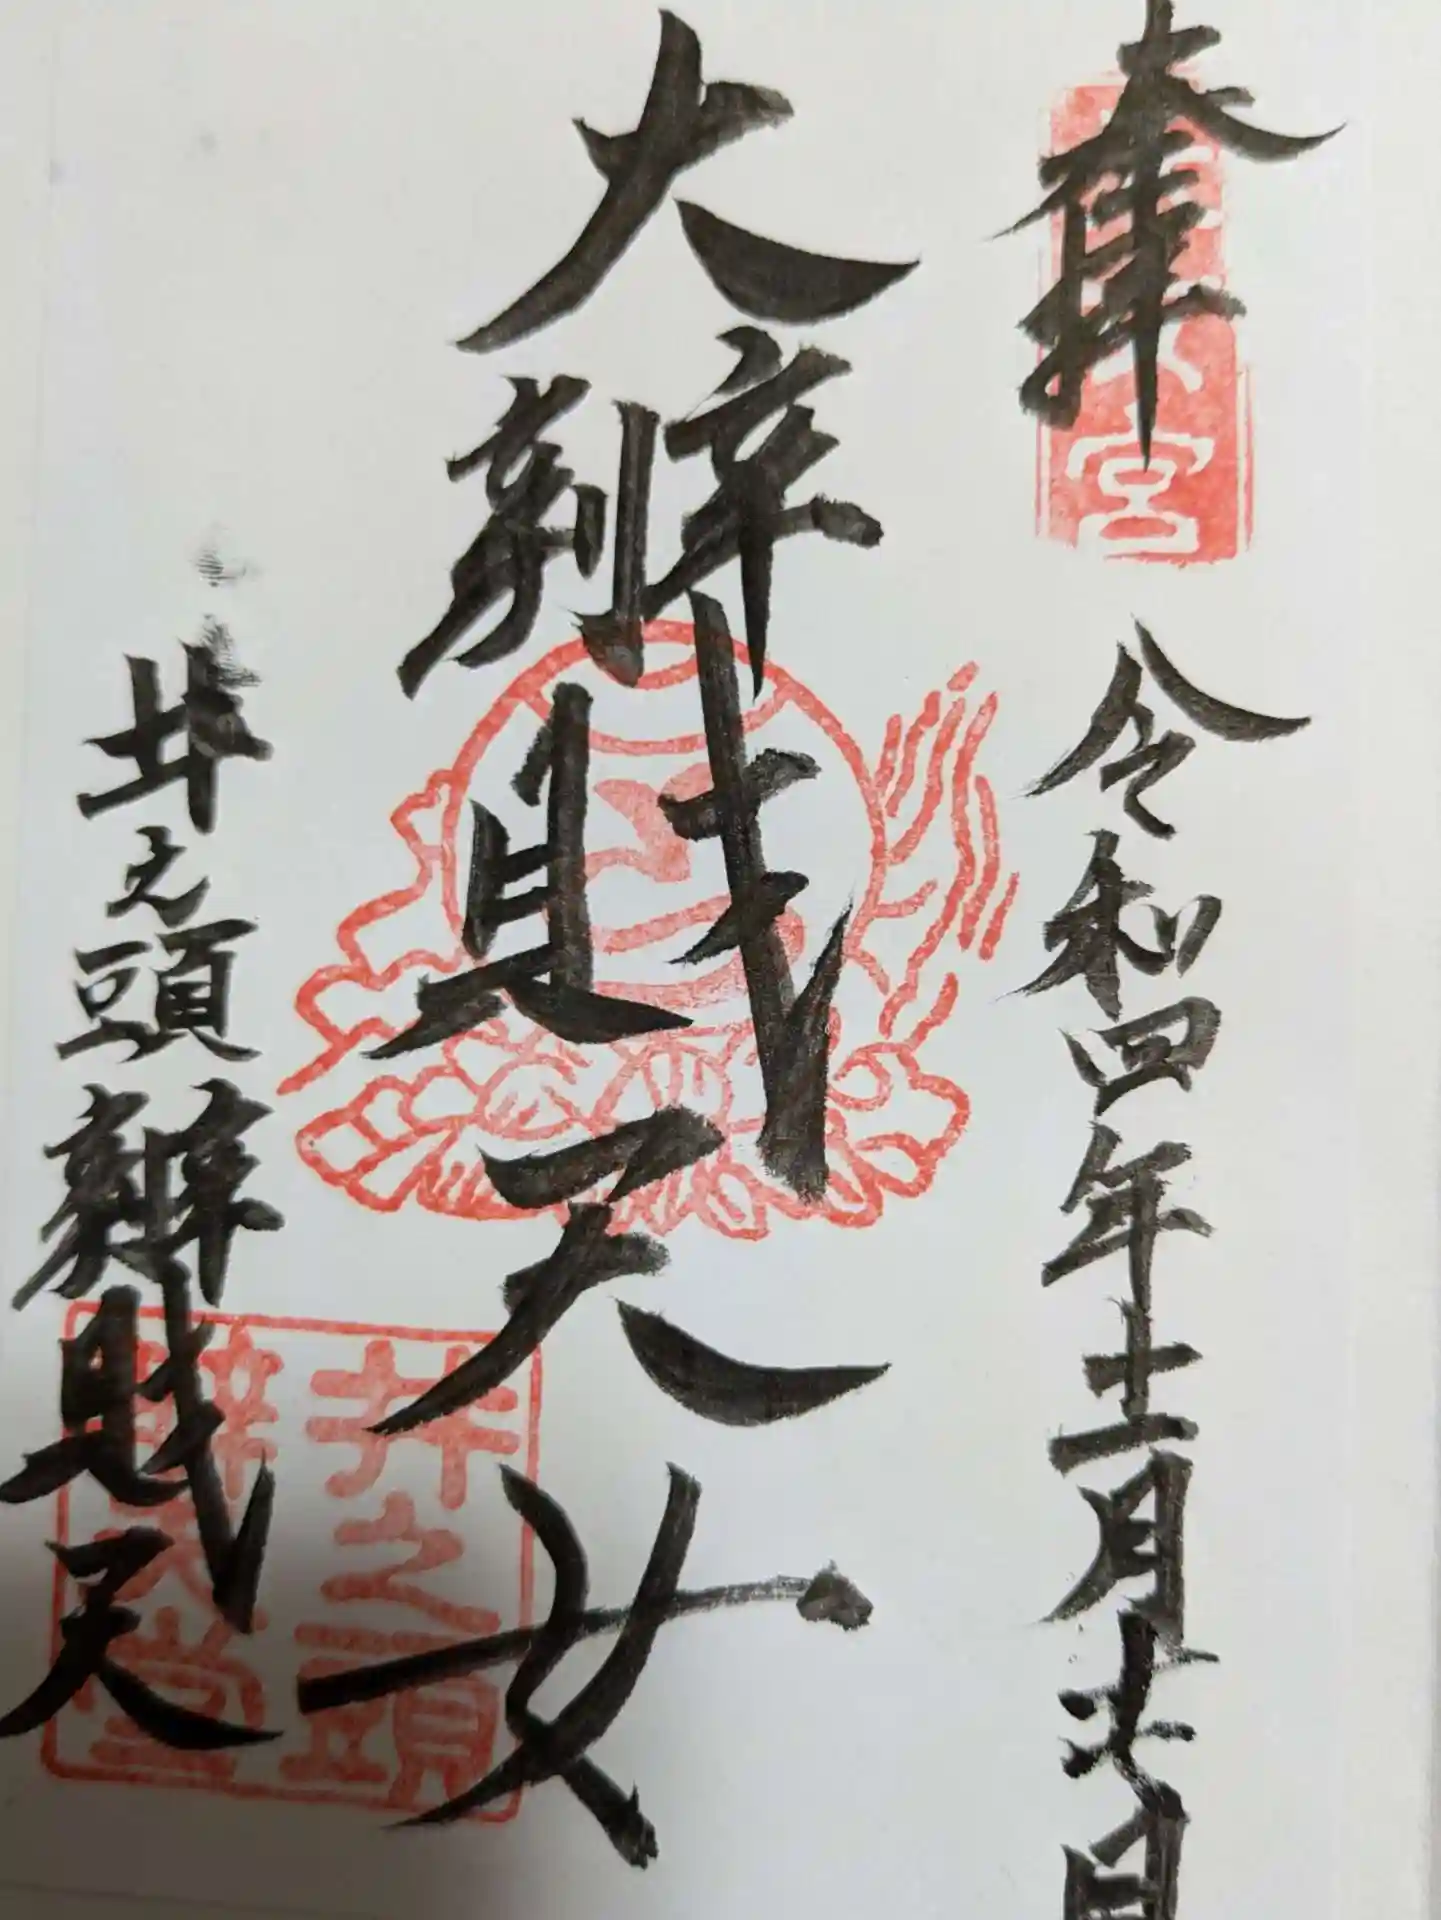 奉拝
宮
令和四年十二月十七日
大辨財天女
井之頭
辨天堂
井之頭辨財天